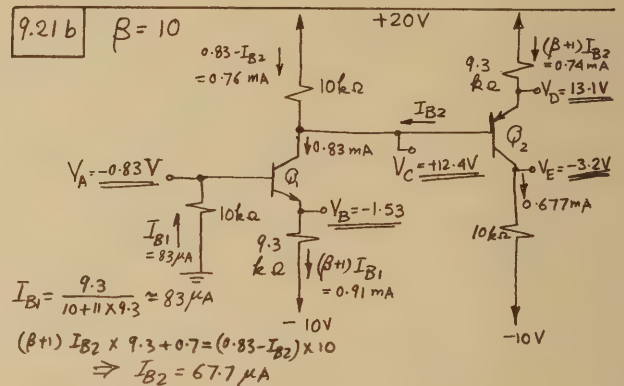 9.21 b
β = 10
+20V
0.83-I_B2
= 0.76 mA
10kΩ
9.3
kΩ
(β+1) I_B2
= 0.74 mA
V_D = 13.1V
I_B2
Q_2
0.83 mA
V_C = +12.4V
V_E = -3.2V
0.677mA
V_A = -0.83 V
Q_1
V_B = -1.53
I_B1
= 83μA
10kΩ
9.3
kΩ
(β+1) I_B1
= 0.91 mA
10kΩ
-10V
-10V
I_B1 = 9.3 / 10+11×9.3 ≃ 83 μA
(β+1) I_B2 × 9.3 + 0.7 = (0.83-I_B2) × 10
⇒ I_B2 = 67.7 μA